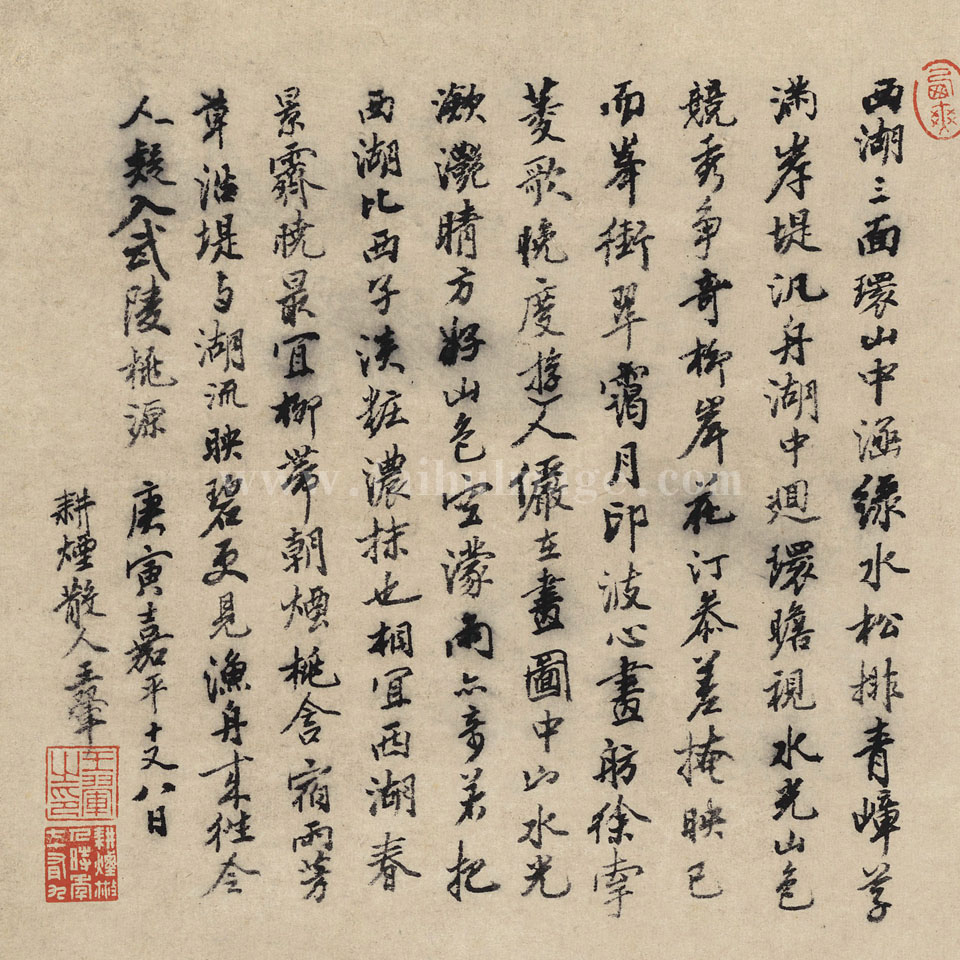 西湖三面環山中涵綠水松排青嶂草
滿岸堤汎舟湖中迴環瞻視水光山色
競秀爭奇柳岸花汀參差掩映已
而峯銜翠靄月印波心畫舫徐牽
菱歌晚度遊人儼在畫圖中山水光
瀲灩晴方好山色空濛雨亦奇若把
西湖比西子淡粧濃抹也相宜西湖春
景霽曉最宜柳帶朝煙桃含宿雨芳
草沿堤与湖流映碧更見漁舟來往令
人疑入武陵桃源 庚寅嘉平十又八日
耕煙散人王翬
王翬之印